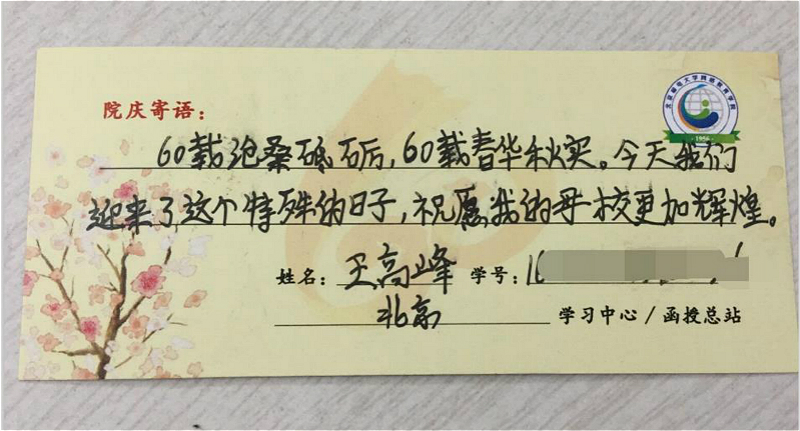 北京邮电大学网络教育学院
1956
院庆寄语：
60载沧桑砥砺，60载春华秋实。今天我们
迎来了这个特殊的日子，祝愿我的母校更加辉煌。
姓名：王高峰 学号：16
北京 学习中心／函授总站